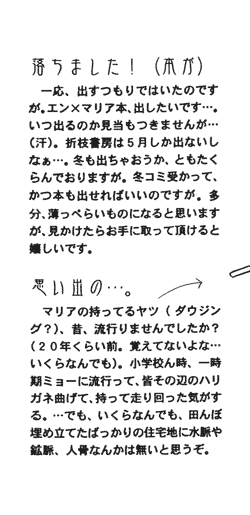 落ちました！（本が）
一応、出すつもりではいたのです
が。エン×マリア本、出したいです…。
いつ出るのか見当もつきませんが…
（汗）。折枝書房は５月しか出ないし
なぁ…。冬も出ちゃおうか、ともたく
らんでおりますが。冬コミ受かって、
かつ本も出せればいいのですが。多
分、薄っぺらいものになると思います
が、見かけたらお手に取って頂けると
嬉しいです。
思い出の…。
マリアの持ってるヤツ（ダウジン
グ？）、昔、流行りませんでしたか？
（２０年くらい前。覚えてないよな…
いくらなんでも）。小学校ん時、一時
期ミョーに流行って、皆その辺のハリ
ガネ曲げて、持って走り回った気がす
る。…でも、いくらなんでも、田んぼ
埋め立てたばっかりの住宅地に水脈や
鉱脈、人骨なんかは無いと思うぞ。